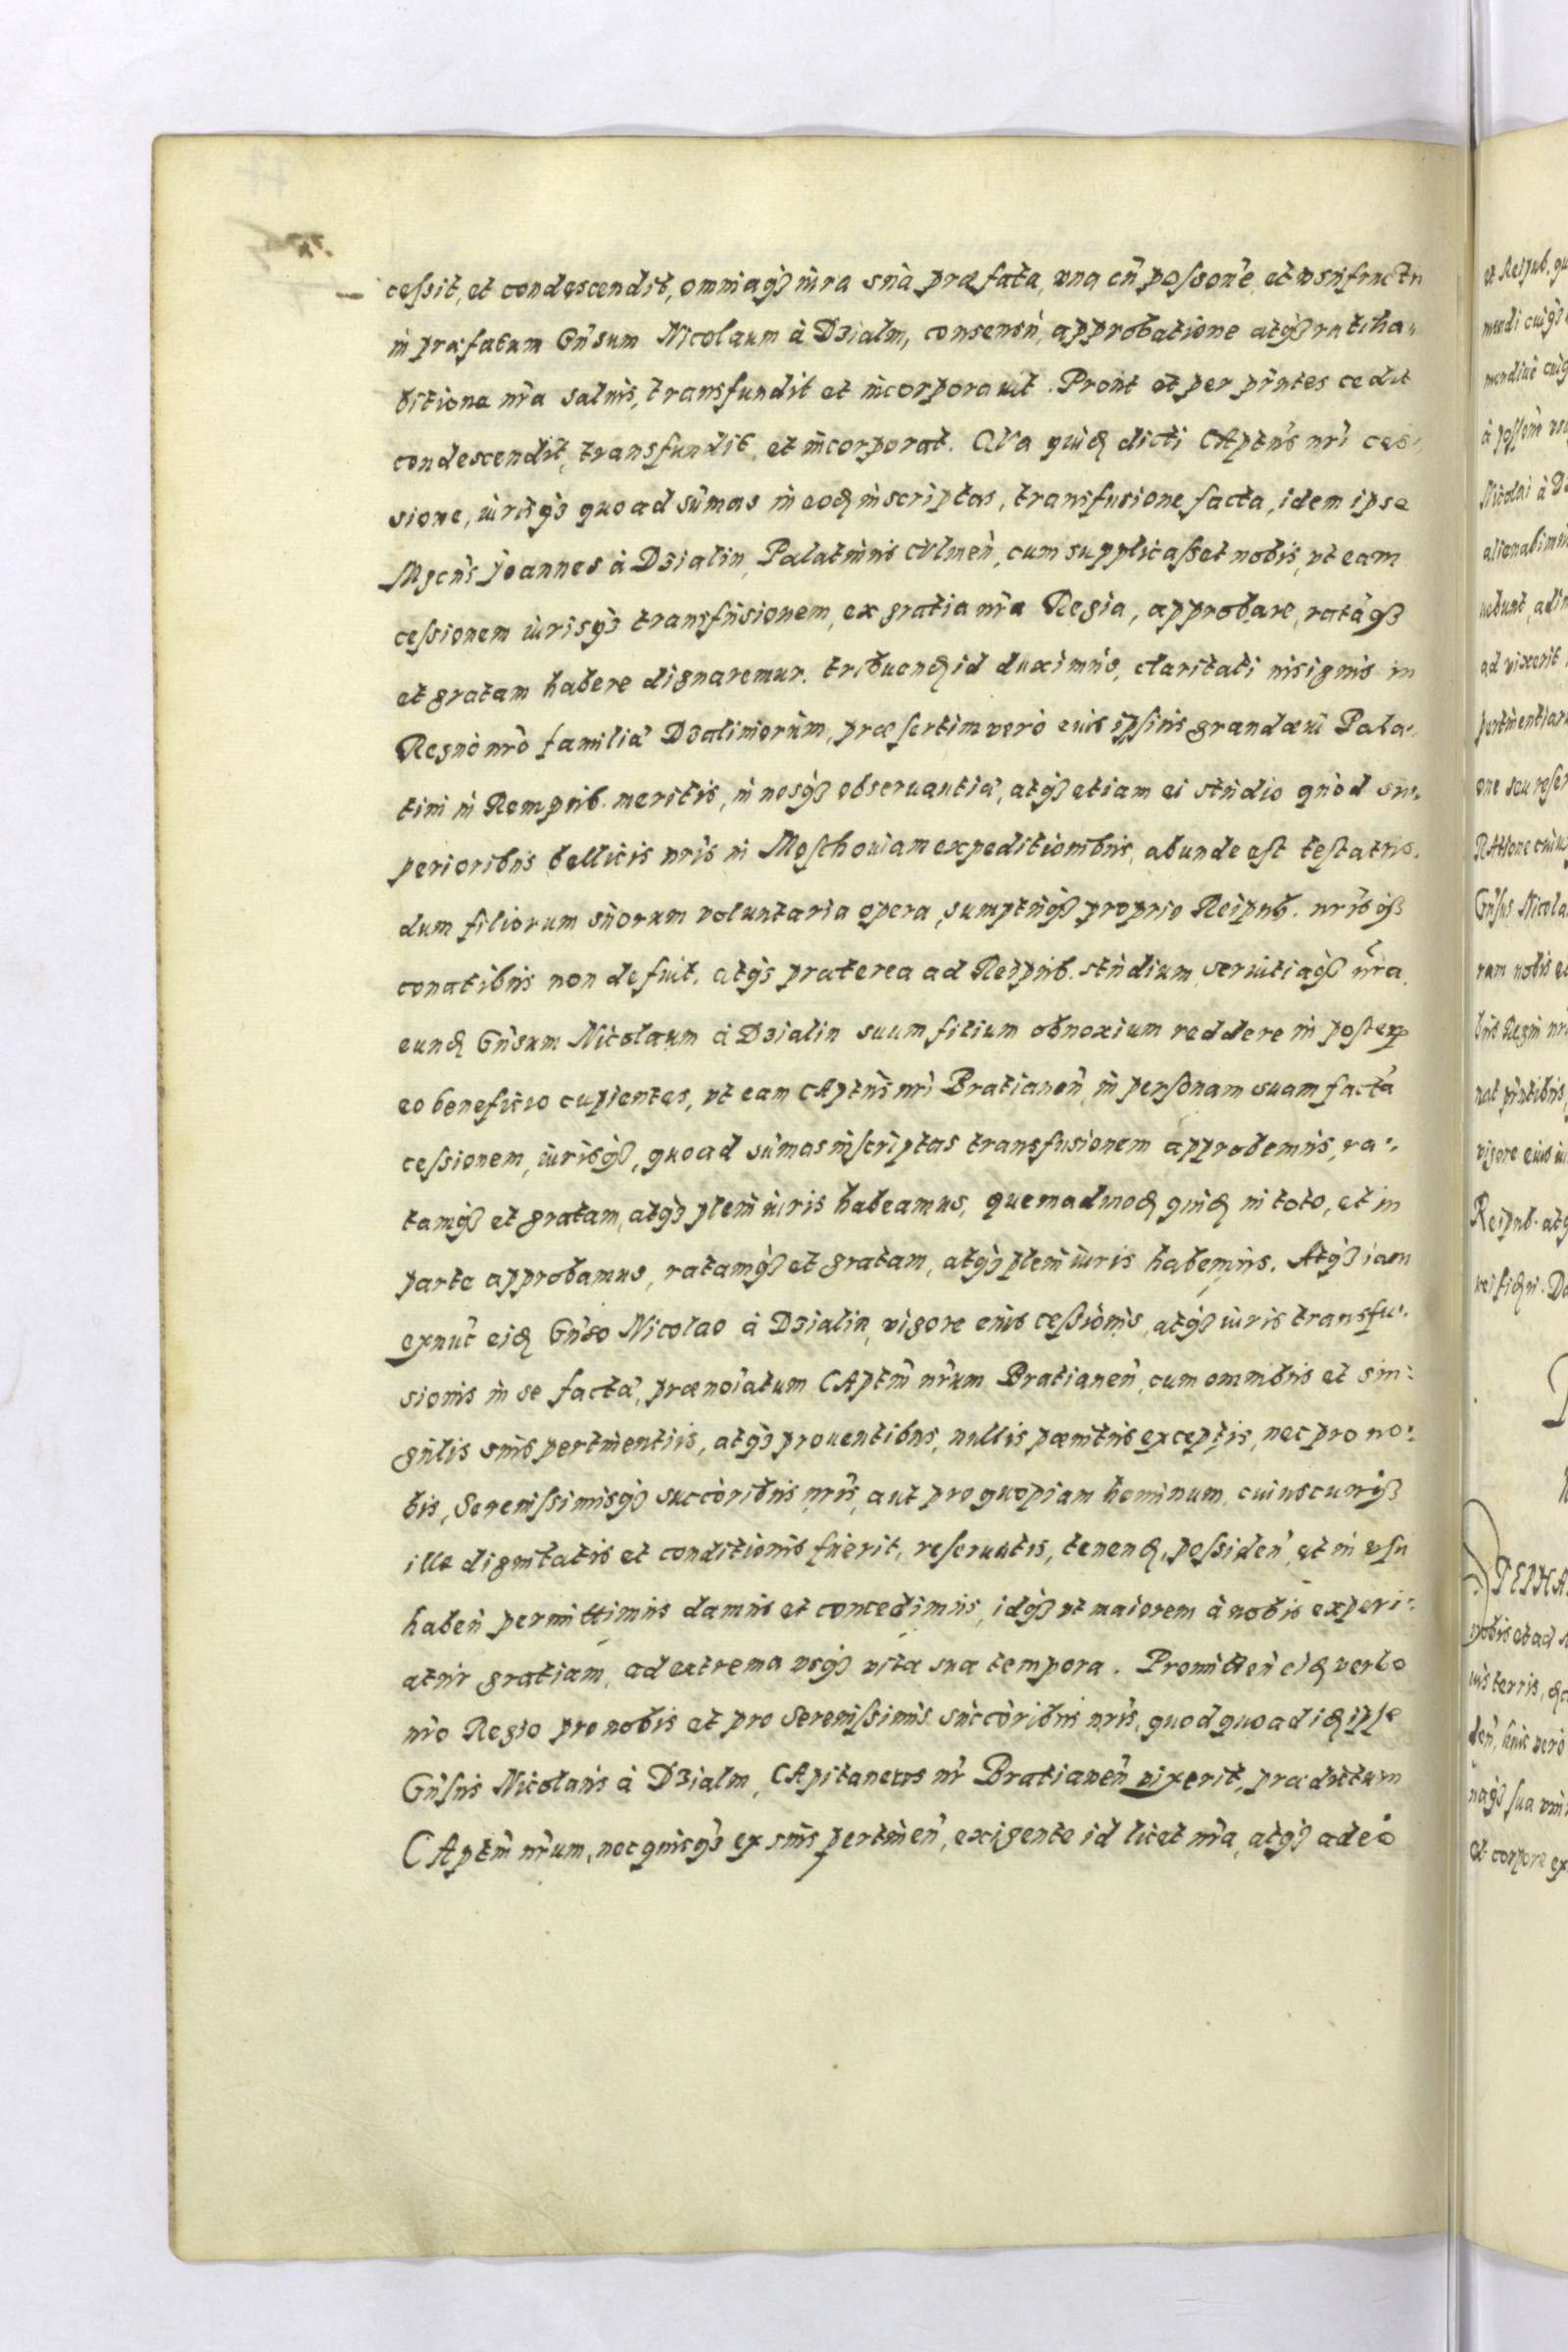 cessit, et condescendit, omniaq3 iura sua præfata, una cũ possonẽ, et usufructu
in præfatum Gñsum Nicolaum à D3ialin, consensu, approbatione atq3 ratiha-
bitione nr̃a saluis, transfundit et incorporauit. Prout et per pñtes cedit
condescendit, transfundit, et incorporat. QVa quidẽ dicti CAptñs nr̃i ces-
sione, iurisq3 quoad sũmas in eodẽ inscriptas, transfusione facta, idem ipse
Mgcñs Joannes à D3ialin, Palatinus CVlmeñ, cum supplicasset nobis, ut eam
cessionem iurisq3 transfusionem, ex gratia nr̃a Regia, approbare, ratãq3
et gratam habere dignaremur. tribuendẽ id duximus, claritati insignis in
Regno nr̃o familiæ D3aliniorum, præsertim vero eius ipsius grandæui Pala-
tini in Rempub. meritis, in nosq3 obseruantiæ, atq3 etiam ei studio quod su-
perioribus bellicis nr̃is in Moschouiam expeditionibus, abunde est testatus,
dum filiorum suorum voluntaria opera, sumptuq3 proprio Reipub. nr̃isq3
conatibus non defuit. atq3 præterea ad Reipub. studium, seruitiaq3 nr̃a
eundẽ Gñsum Nicolaum à D3ialin suum filium obnoxium reddere in poster
eo beneficio cupientes, ut eam CAptñs nr̃i Bratianeñ, in personam suam factã
cessionem, iurisq3, quoad sũmas inscriptas transfusionem approbemus, ra-
tamq3 et gratam, atq3 pleni iuris habeamus, quemadmodẽ quidẽ in toto, et in
parte approbamus, ratamq3 et gratam, atq3 pleni iuris habemus. Atq3 iam
exnũc eidẽ Gñso Nicolao à D3ialin, vigore eius cessionis, atq3 iuris transfu-
sionis in se factæ, prænoĩatum CAptm̃ nr̃um Bratianeñ, cum omnibus et sin-
gulis suis pertinentiis, atq3 prouentibus, nullis pænitus exceptis, nec pro no-
bis, Serenissimisq3 succoribus nr̃is, aut pro quopiam hominum, cuiuscunq3
ille dignitatis et conditionis fuerit, reseruatis, tenendẽ, possideñ, et in usu
habeñ permittimus damus et concedimus, idq3 ut maiorem à nobis experi-
atur gratiam, ad extrema usq3 vitæ suæ tempora. Promitteñ eidẽ verbo
nr̃o Regio pro nobis et pro Serenissimis succoribus nr̃is, quod quoad idẽ ipse
Gñsus Nicolaus à D3ialin, CApitaneus nr̃ Bratianeñ vixerit, prædictum
CAptm̃ nr̃um, nec quicq3 ex suis pertineñ, exigente id licet nr̃a, atq3 adeò